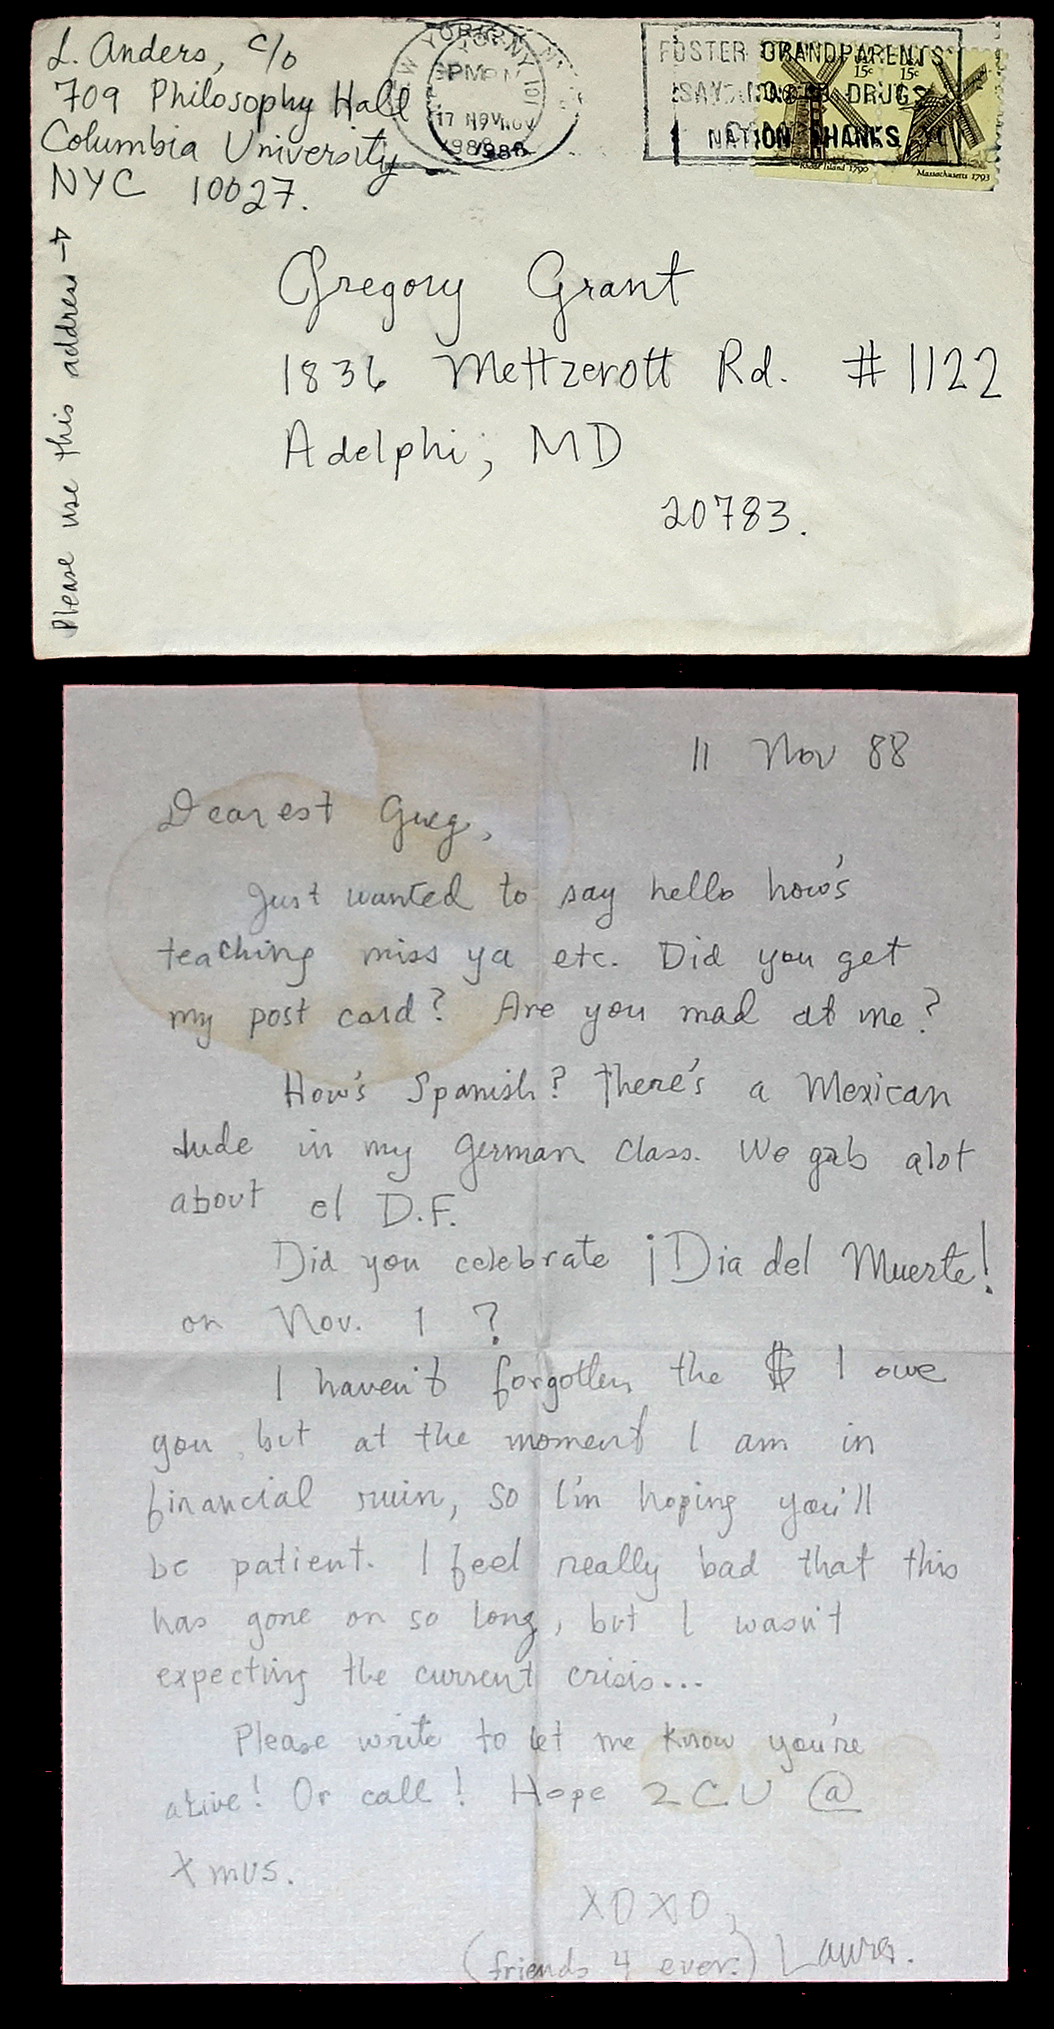 L. Anders, c/o
709 Philosophy Hall
Columbia University
NYC 10027.
Please use this address →
NEW YORK, NY
PM
17 NOV
1988
FOSTER GRANDPARENTS
SAY NO TO DRUGS
NATION THANKS
15c 15c
Rhode Island 1790
Massachusetts 1793
Gregory Grant
1836 Mettzerott Rd. #1122
Adelphi, MD
20783.
11 Nov 88
Dearest Greg,
Just wanted to say hello how's
teaching miss ya etc. Did you get
my post card? Are you mad at me?
How's Spanish? There's a Mexican
dude in my German class. We gab alot
about el D.F.
Did you celebrate ¡Dia del Muerte!
on Nov. 1 ?
I haven't forgotten the $ I owe
you, but at the moment I am in
financial ruin, so I'm hoping you'll
be patient. I feel really bad that this
has gone on so long, but I wasn't
expecting the current crisis...
Please write to let me know you're
alive! Or call! Hope 2 C U @
Xmus.
XOXO,
(friends 4 ever.) Laura.